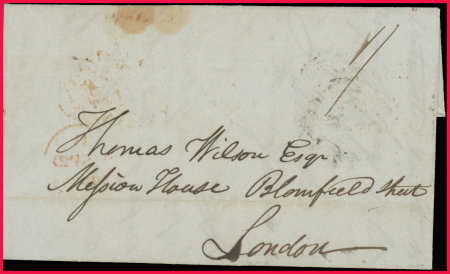 1/
Thomas Wilson Esqr
Mission House Blomfield street
London